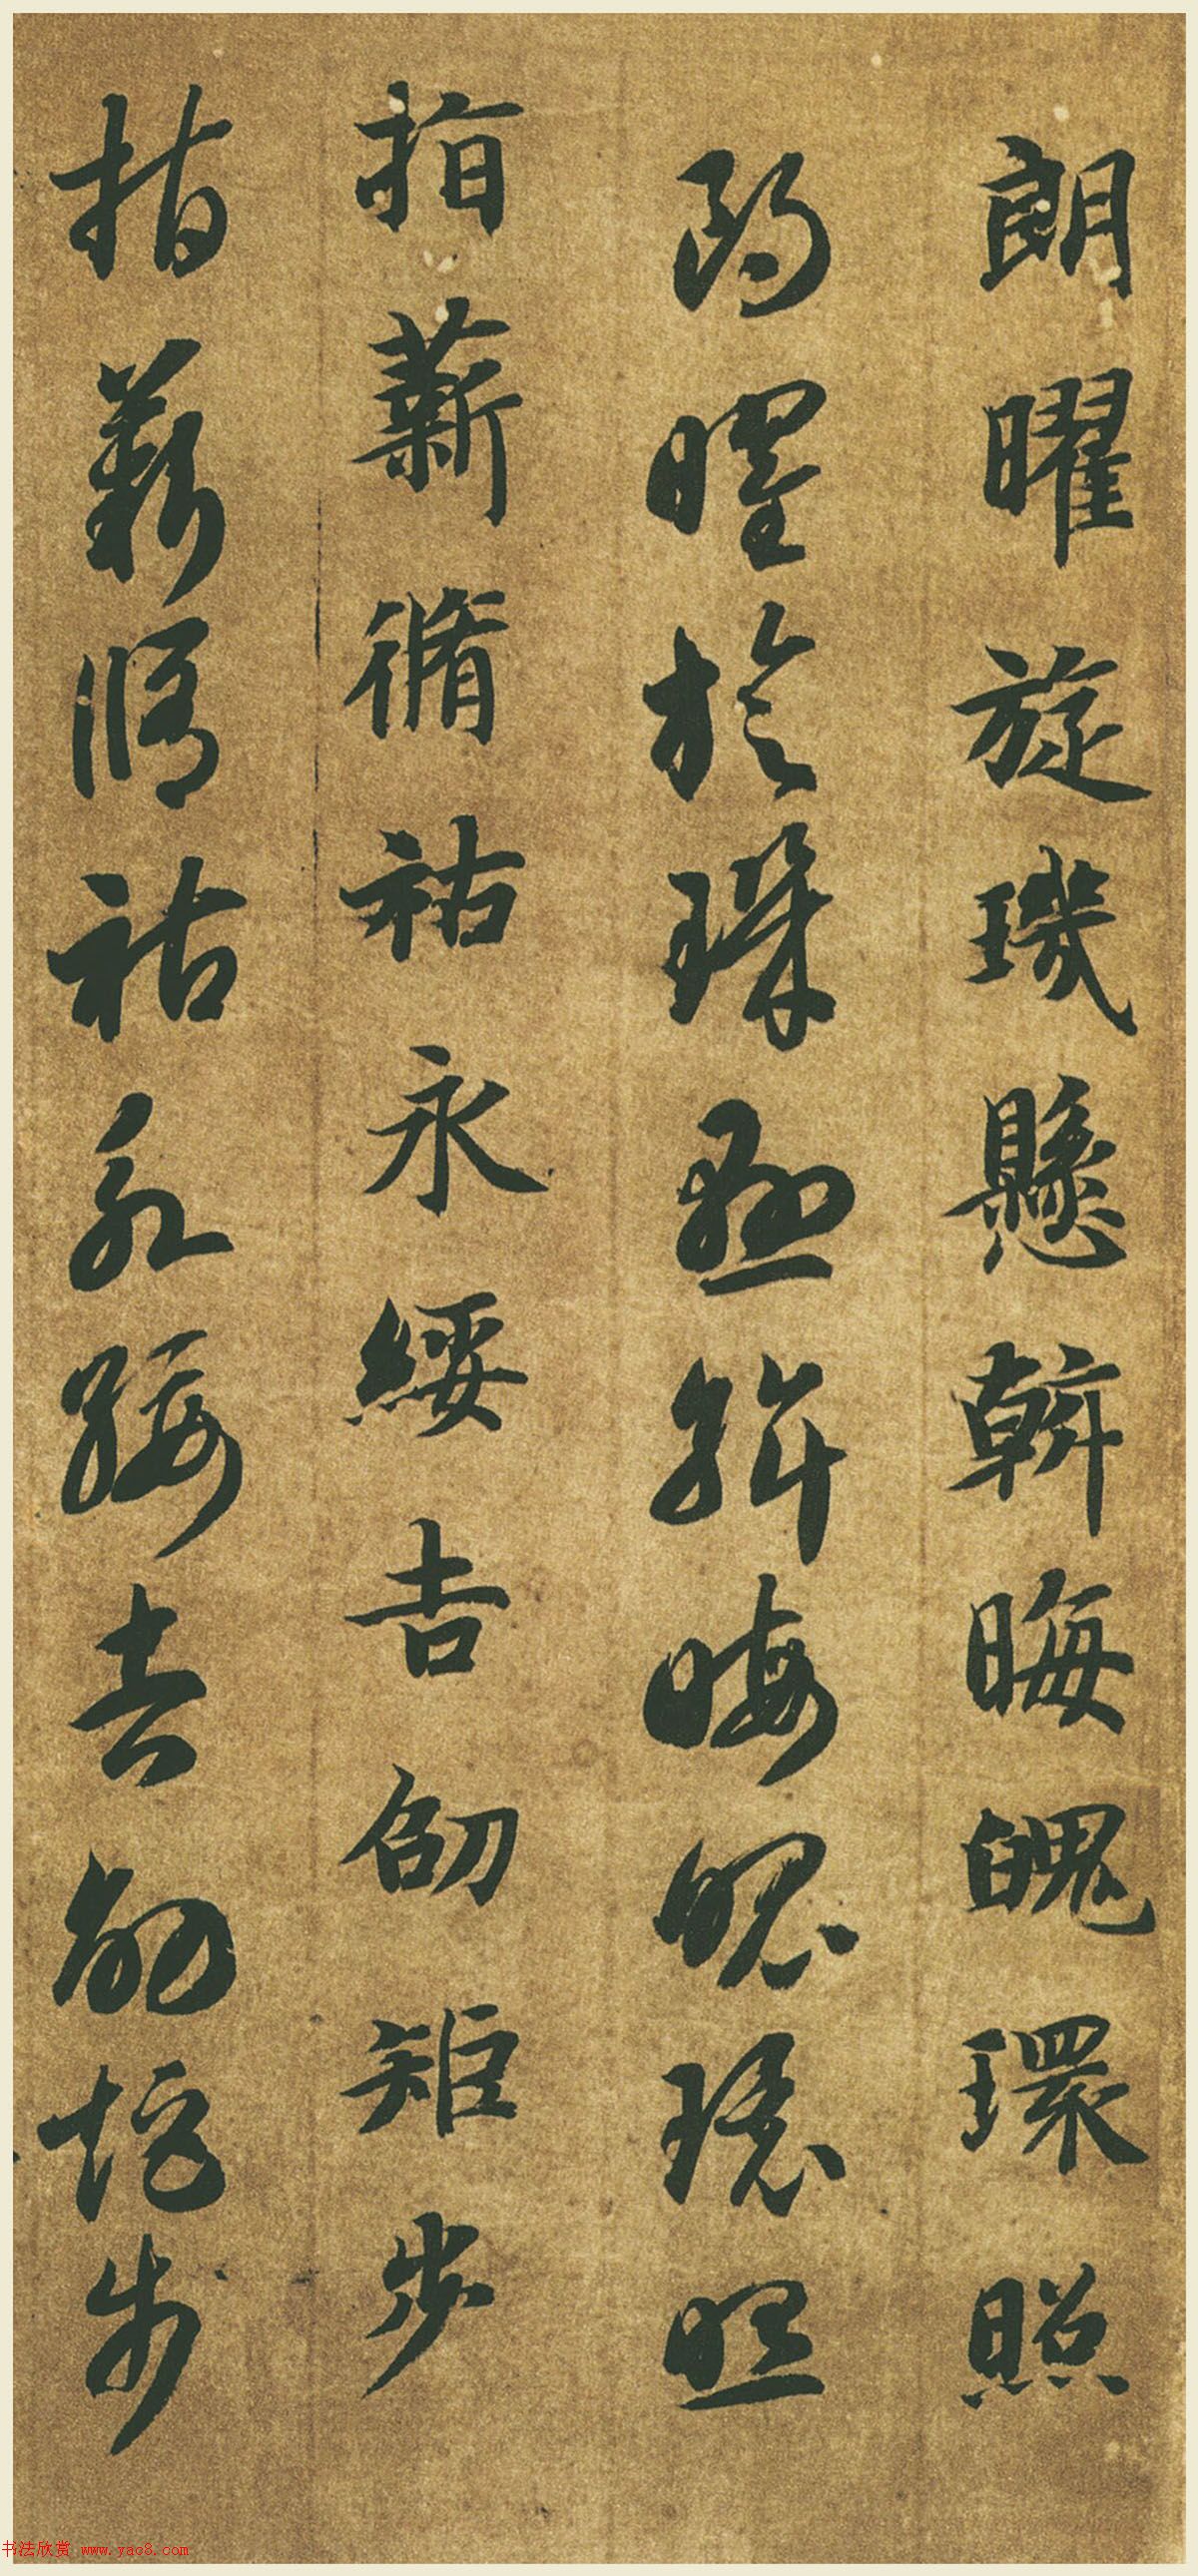 朗曜旋璣懸斡晦魄環照
朗曜旋璣懸斡晦魄環照
指薪脩祜永綏吉劭矩步
指薪脩祜永綏吉劭矩步
书法欣赏 www.yac8.com